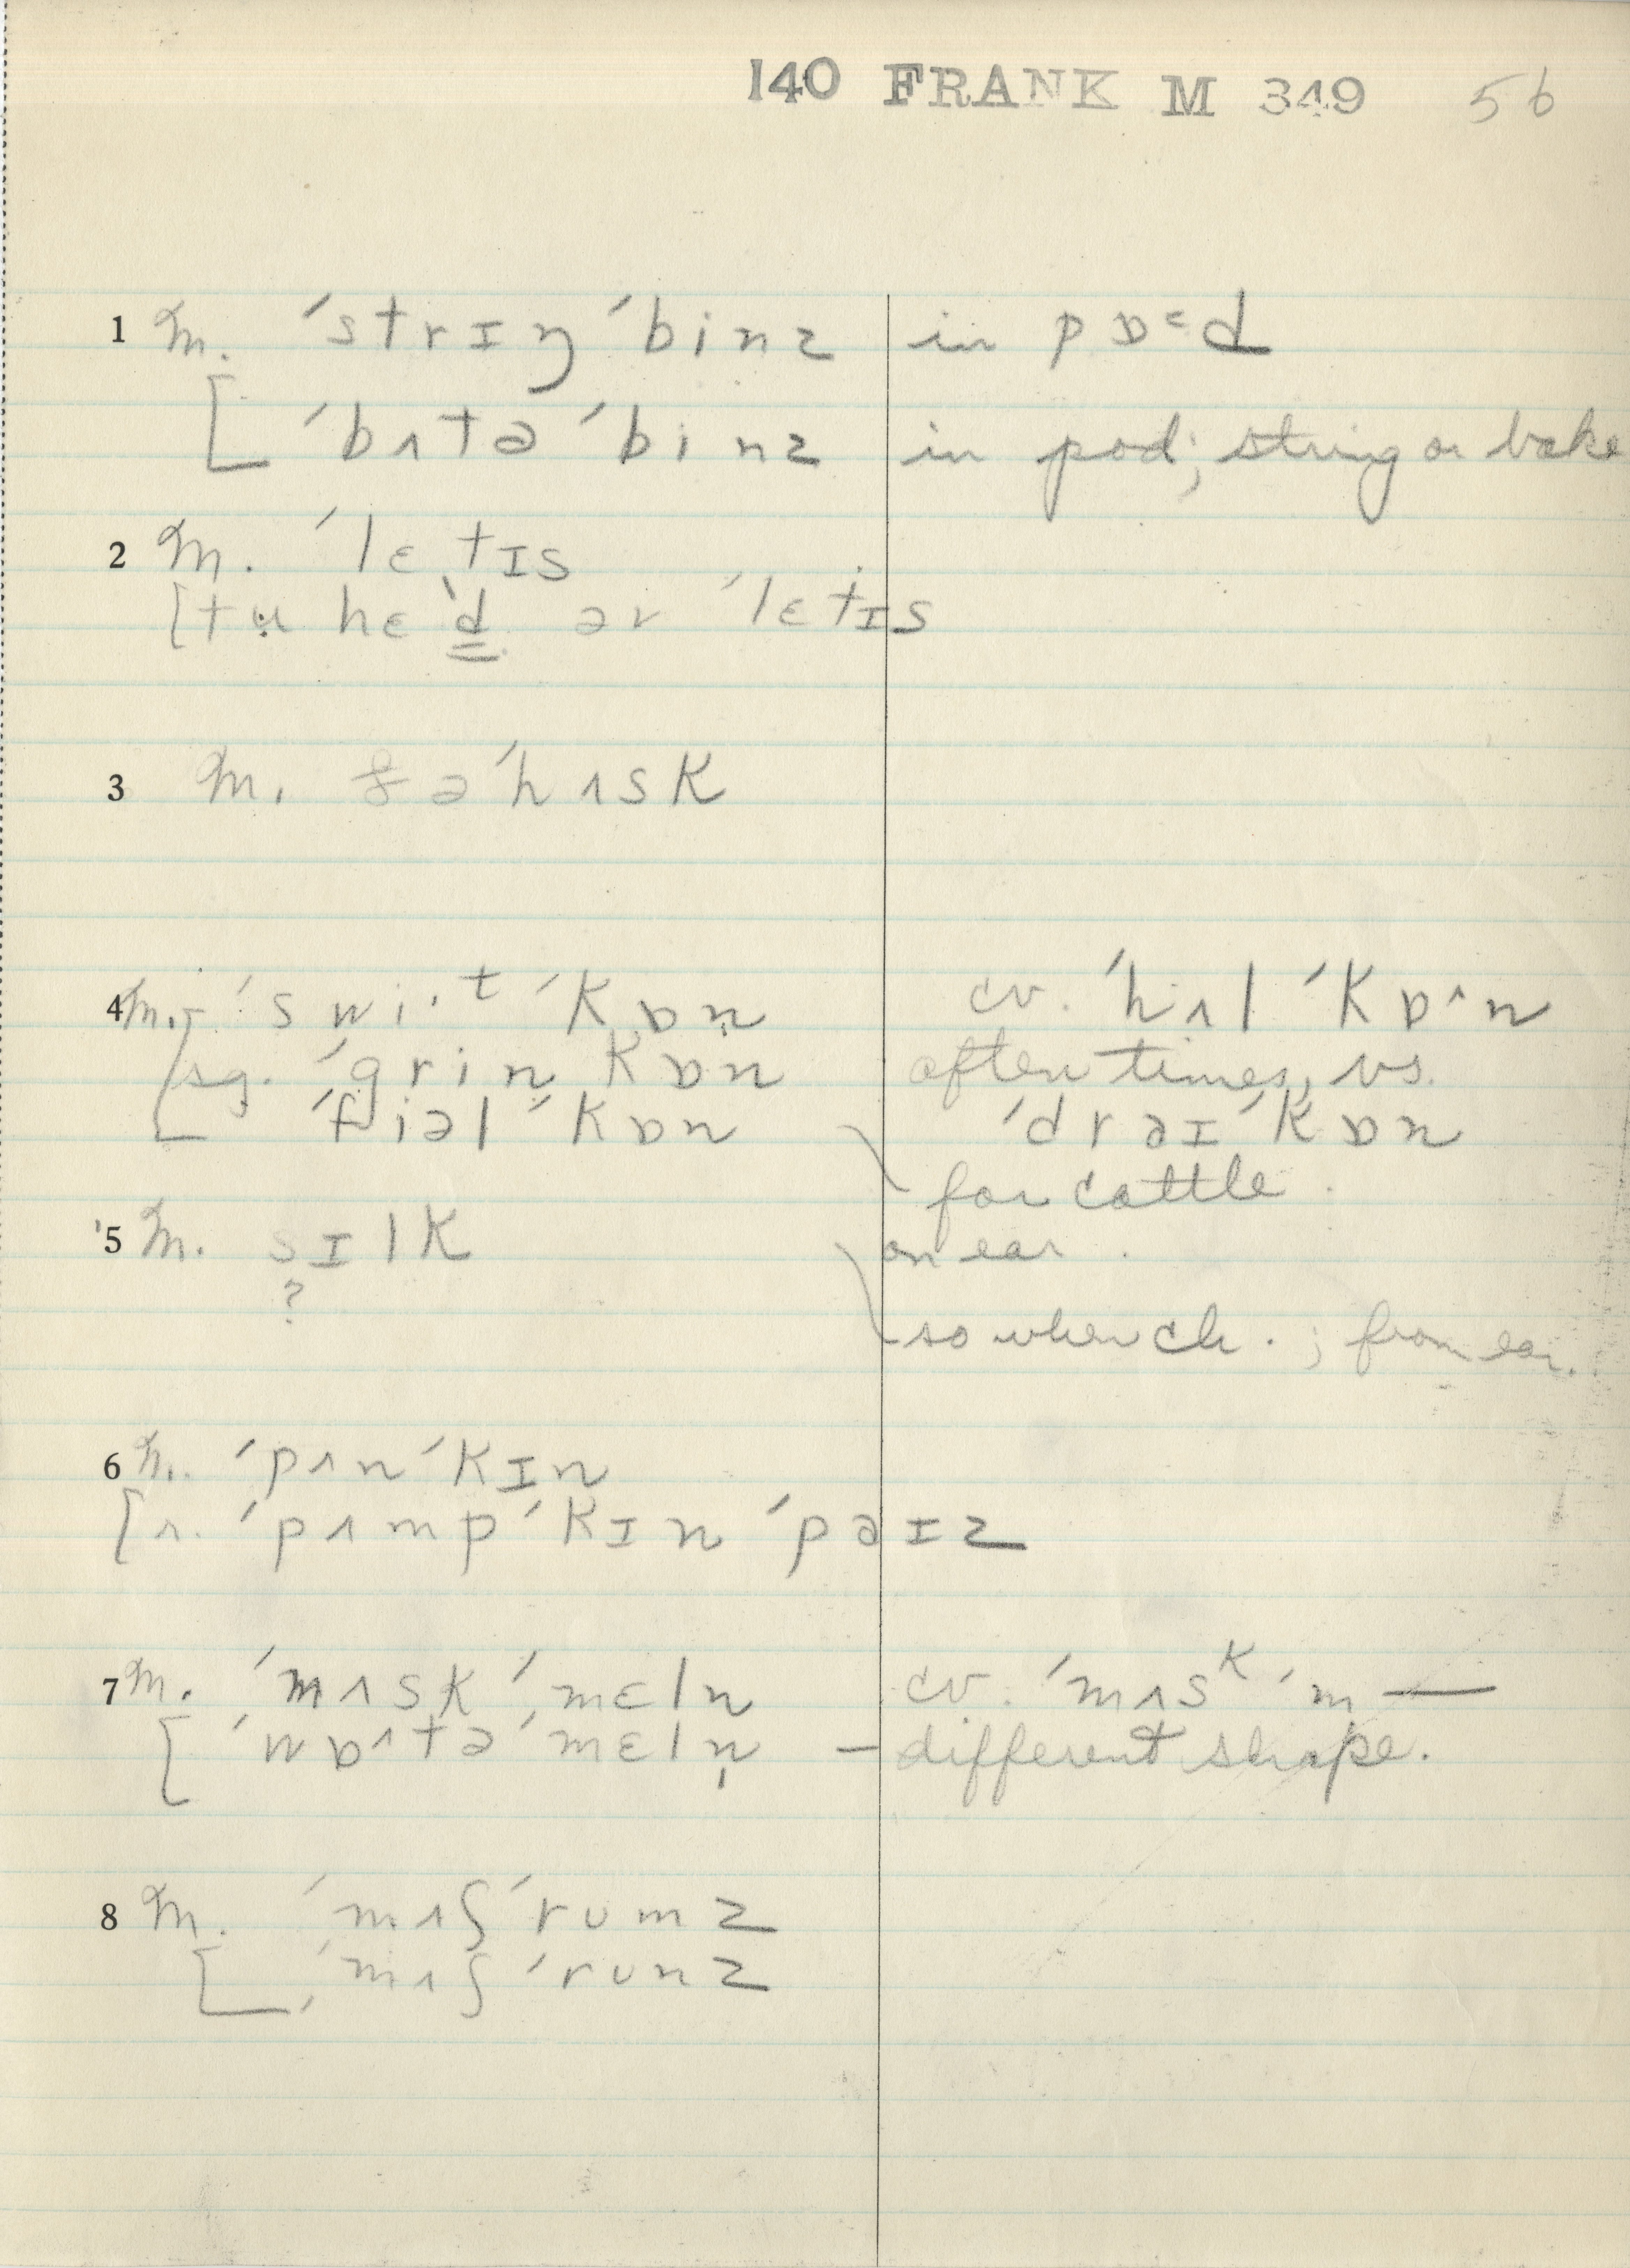 140 FRANK M 349 56
1 M. ˊstrɪŋ ˊbinz in pɒᵋd
[ ˊbʌtə ˊbinz in pod; string or bake
2 M. ˊlɛtɪs
[tʉ hɛˋd ər ˊlɛtɪs
3 M. ðəˊhʌsk
4 M. ˊswi·ᵗ ˊkɒn cv. ˊhʌl ˊkɒ˄n
[sg. ˊgrin kɒn often times, vs.
ˊfiəl ˊkɒn ˊdrəɪ ˊkɒn
for cattle.
5 M. sɪlk on ear.
?
so when ch.; from ear.
6 M. ˊpʌnˊkɪn
[r. ˊpʌmpˊkɪn ˊpəɪz
7 M. ˊmʌsk ˊmɛln̩ cv. ˊmʌsᵏ ˊm—
[ ˊwɒ˄tə ˊmɛln̩ — different shape.
8 M. ˊmʌʃˊrumz
[ ˊmʌʃˊrunz